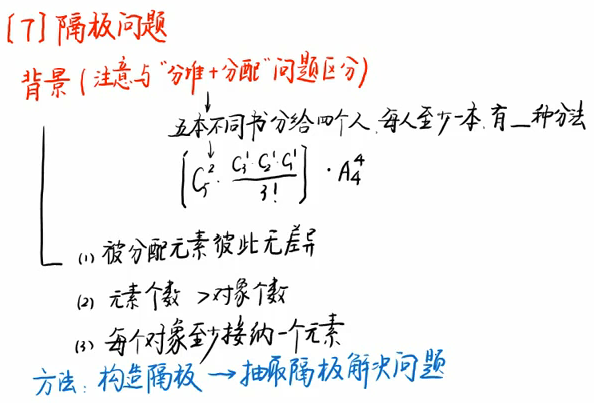 [7] 隔板问题
背景(注意与"分堆+分配"问题区分)
五本不同书分给四个人.每人至少一本.有__种分法
[C₅² · (C₃¹·C₂¹·C₁¹)/3!] · A₄⁴
(1) 被分配元素彼此无差异
(2) 元素个数 >对象个数
(3) 每个对象至少接纳一个元素
方法: 构造隔板 → 抽取隔板解决问题